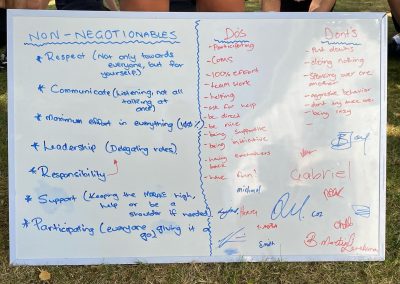 NON-NEGOTIONABLES
* Respect (Not only towards
everyone, but for
yourself)
* Communicate (Listening, not all
talking at
once)
* Maximum effort in everything (100%)
* Leadership (Delegating roles)
* Responsibility
* Support (Keeping the MORALE high,
help or be a
shoulder if needed)
* Participating (everyone giving it a
go)
Do's
- Participating
- COMS
- 100% EFFORT
- team work
- helping
- ask for help
- be direct
- be nice
- being supportive
- being initiative
- having
back
- have fun!
Dont's
- Put downs
- doing nothing
- Standing over one
another
- aggressive behavior
- being lazy
Gabriel
michael
Smith